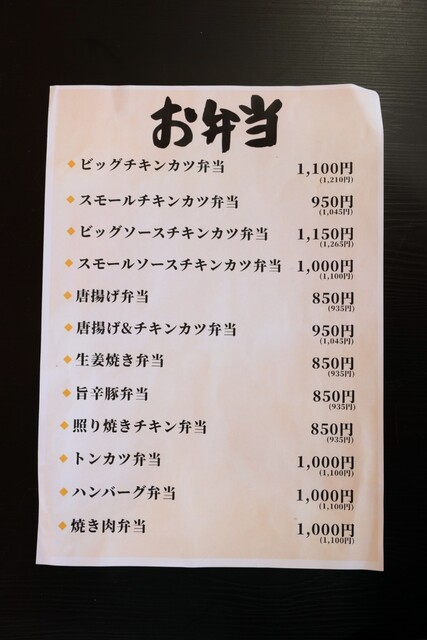 お弁当
ビッグチキンカツ弁当 1,100円
(1,210円)
スモールチキンカツ弁当 950円
(1,045円)
ビッグソースチキンカツ弁当 1,150円
(1,265円)
スモールソースチキンカツ弁当 1,000円
(1,100円)
唐揚げ弁当 850円
(935円)
唐揚げ&チキンカツ弁当 950円
(1,045円)
生姜焼き弁当 850円
(935円)
旨辛豚弁当 850円
(935円)
照り焼きチキン弁当 850円
(935円)
トンカツ弁当 1,000円
(1,100円)
ハンバーグ弁当 1,000円
(1,100円)
焼き肉弁当 1,000円
(1,100円)